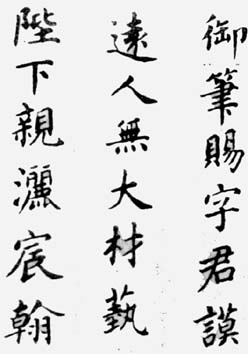 御筆賜字君謨
遠人無大材藝
陛下親灑宸翰